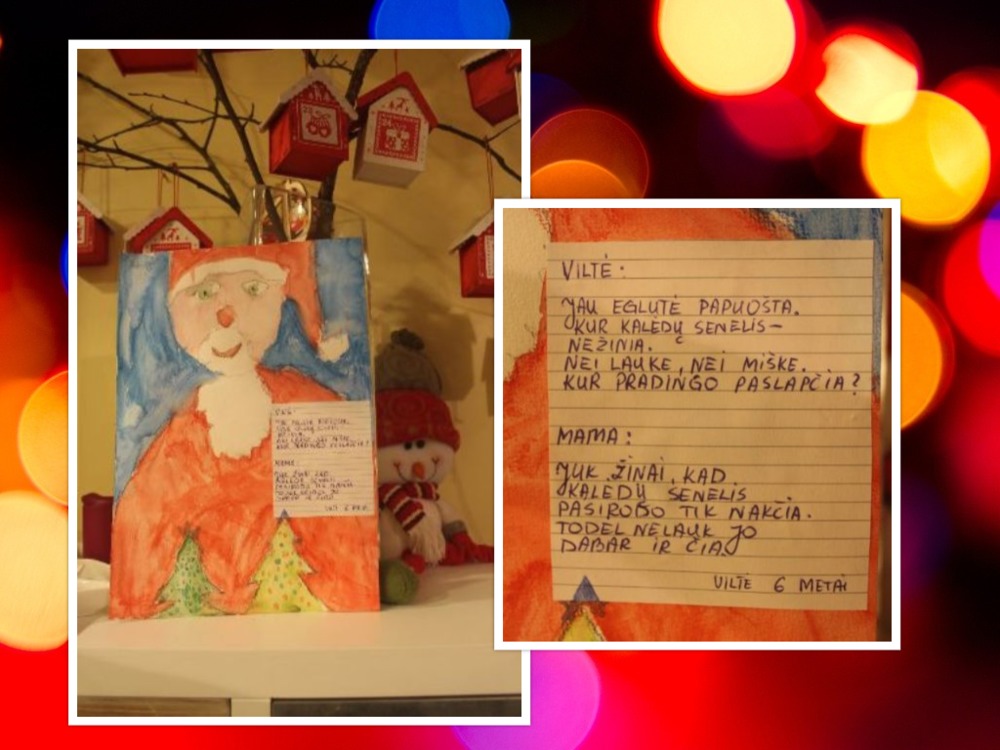 VILTĖ:
JAU EGLUTĖ PAPUOŠTA.
KUR KALĖDŲ SENELIS –
NEŽINIA.
NEI LAUKE, NEI MIŠKE.
KUR PRADINGO PASLAPČIA?
MAMA:
JUK ŽINAI, KAD
KALĖDŲ SENELIS
PASIRODO TIK NAKČIA.
TODĖL NELAUK JO
DABAR IR ČIA.
VILTĖ 6 METAI